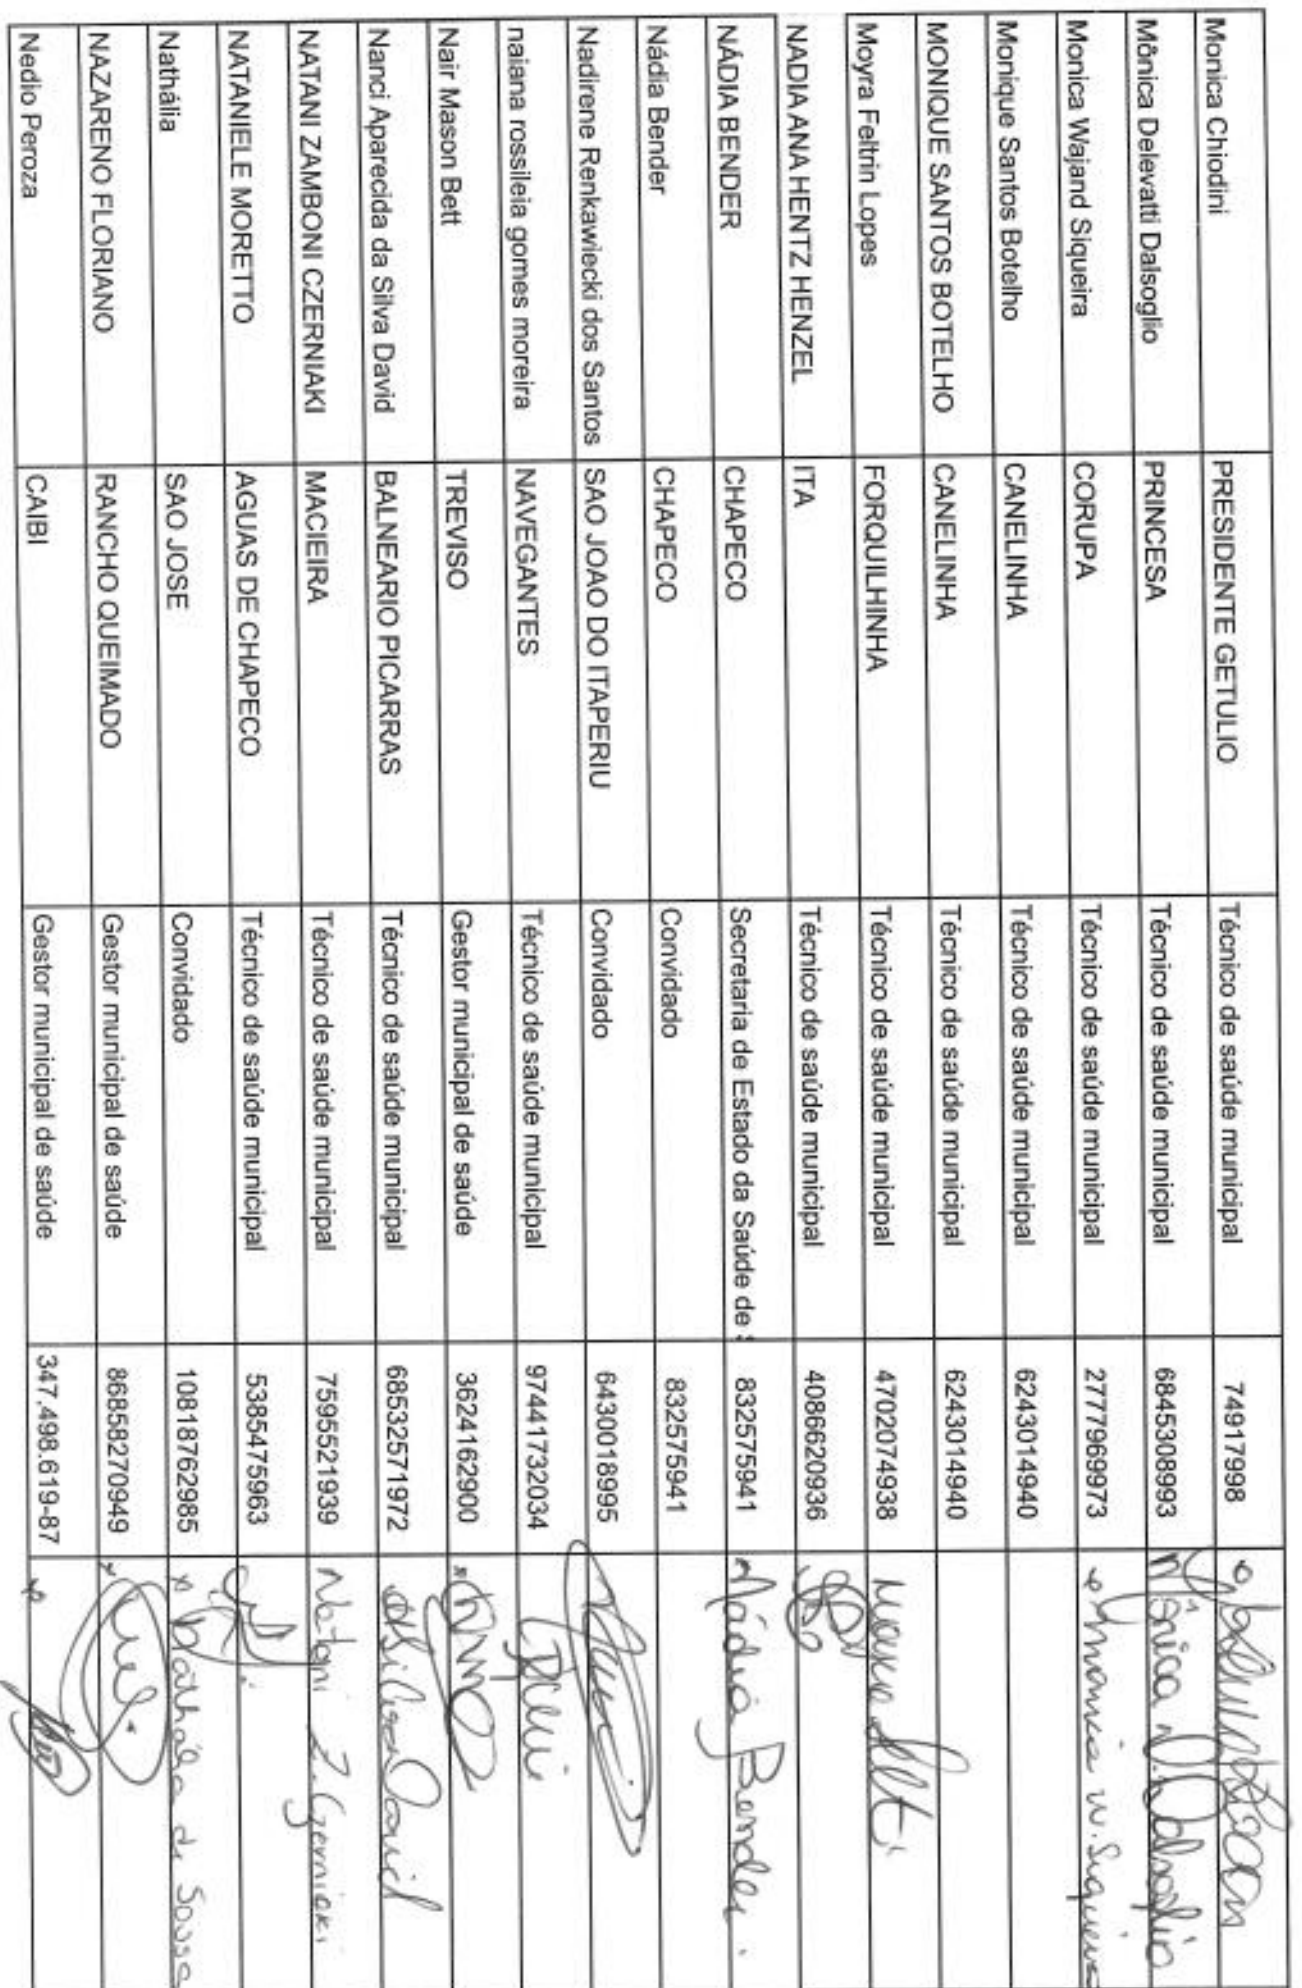 Monica Chiodini PRESIDENTE GETULIO Técnico de saúde municipal 74917998
Mônica Delevatti Dalsoglio PRINCESA Técnico de saúde municipal 6845308993 Mônica D. Dalsoglio
Monica Wajand Siqueira CORUPA Técnico de saúde municipal 2777969973 Monica W. Siqueira
Monique Santos Botelho CANELINHA Técnico de saúde municipal 6243014940
MONIQUE SANTOS BOTELHO CANELINHA Técnico de saúde municipal 6243014940
Moyra Feltrin Lopes FORQUILHINHA Técnico de saúde municipal 4702074938
NADIA ANA HENTZ HENZEL ITA Técnico de saúde municipal 4086620936
NÁDIA BENDER CHAPECO Secretaria de Estado da Saúde de 832575941 Nádia Bender
Nádia Bender CHAPECO Convidado 832575941
Nadirene Renkawiecki dos Santos SAO JOAO DO ITAPERIU Convidado 6430018995
naiana rossileia gomes moreira NAVEGANTES Técnico de saúde municipal 97441732034
Nair Mason Bett TREVISO Gestor municipal de saúde 3624162900
Nanci Aparecida da Silva David BALNEARIO PICARRAS Técnico de saúde municipal 68532571972 David
NATANI ZAMBONI CZERNIAKI MACIEIRA Técnico de saúde municipal 7595521939 Natani Z. Czerniaki
NATANIELE MORETTO AGUAS DE CHAPECO Técnico de saúde municipal 5385475963
Nathália SAO JOSE Convidado 10818762985 Nathália de Sousa
NAZARENO FLORIANO RANCHO QUEIMADO Gestor municipal de saúde 86858270949
Nedio Peroza CAIBI Gestor municipal de saúde 347.498.619-87